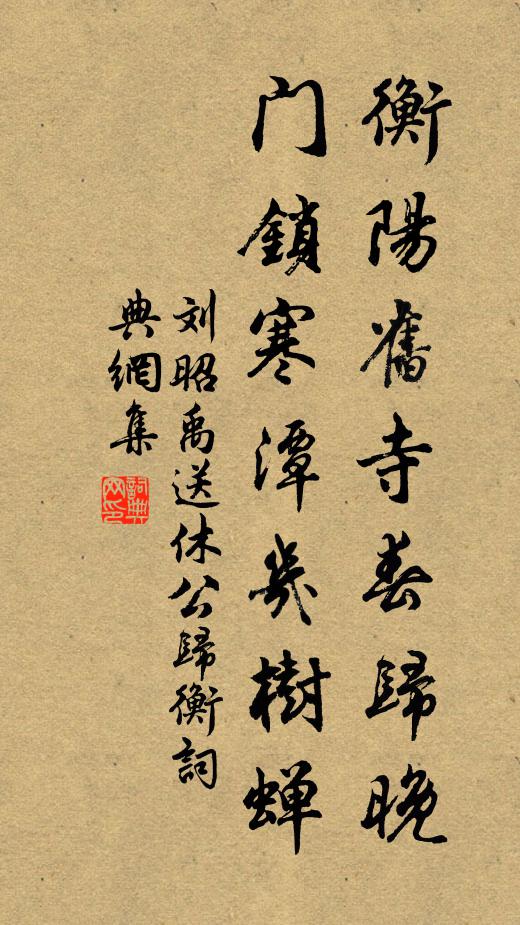 衡陽舊寺春歸晚
门鎖寒潭幾樹蝉
刘昭禹送休公歸衡詞
典網集
詞典網印